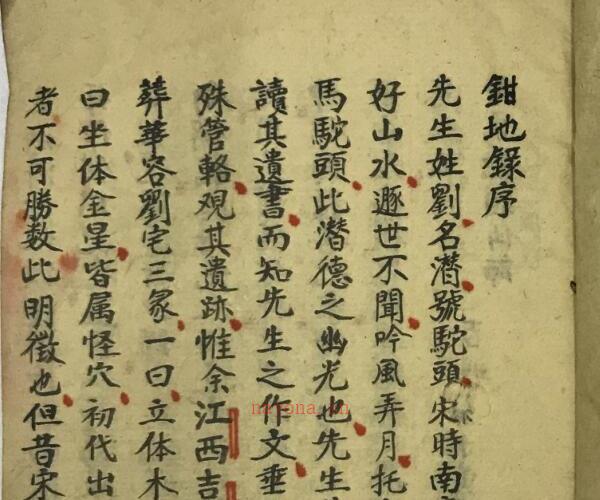 鉗地錄序
先生姓劉名潛號駝頭宋時南
好山水遯世不聞吟風弄月托
馬駝頭此潛德之幽光也先生
讀其遺書而知先生之作文垂
殊管輅观其遺跡惟余江西吉
葬華容劉宅三冢一曰立体木
曰坐体金星皆属怪穴初代出
者不可勝数此明徵也但昔宋